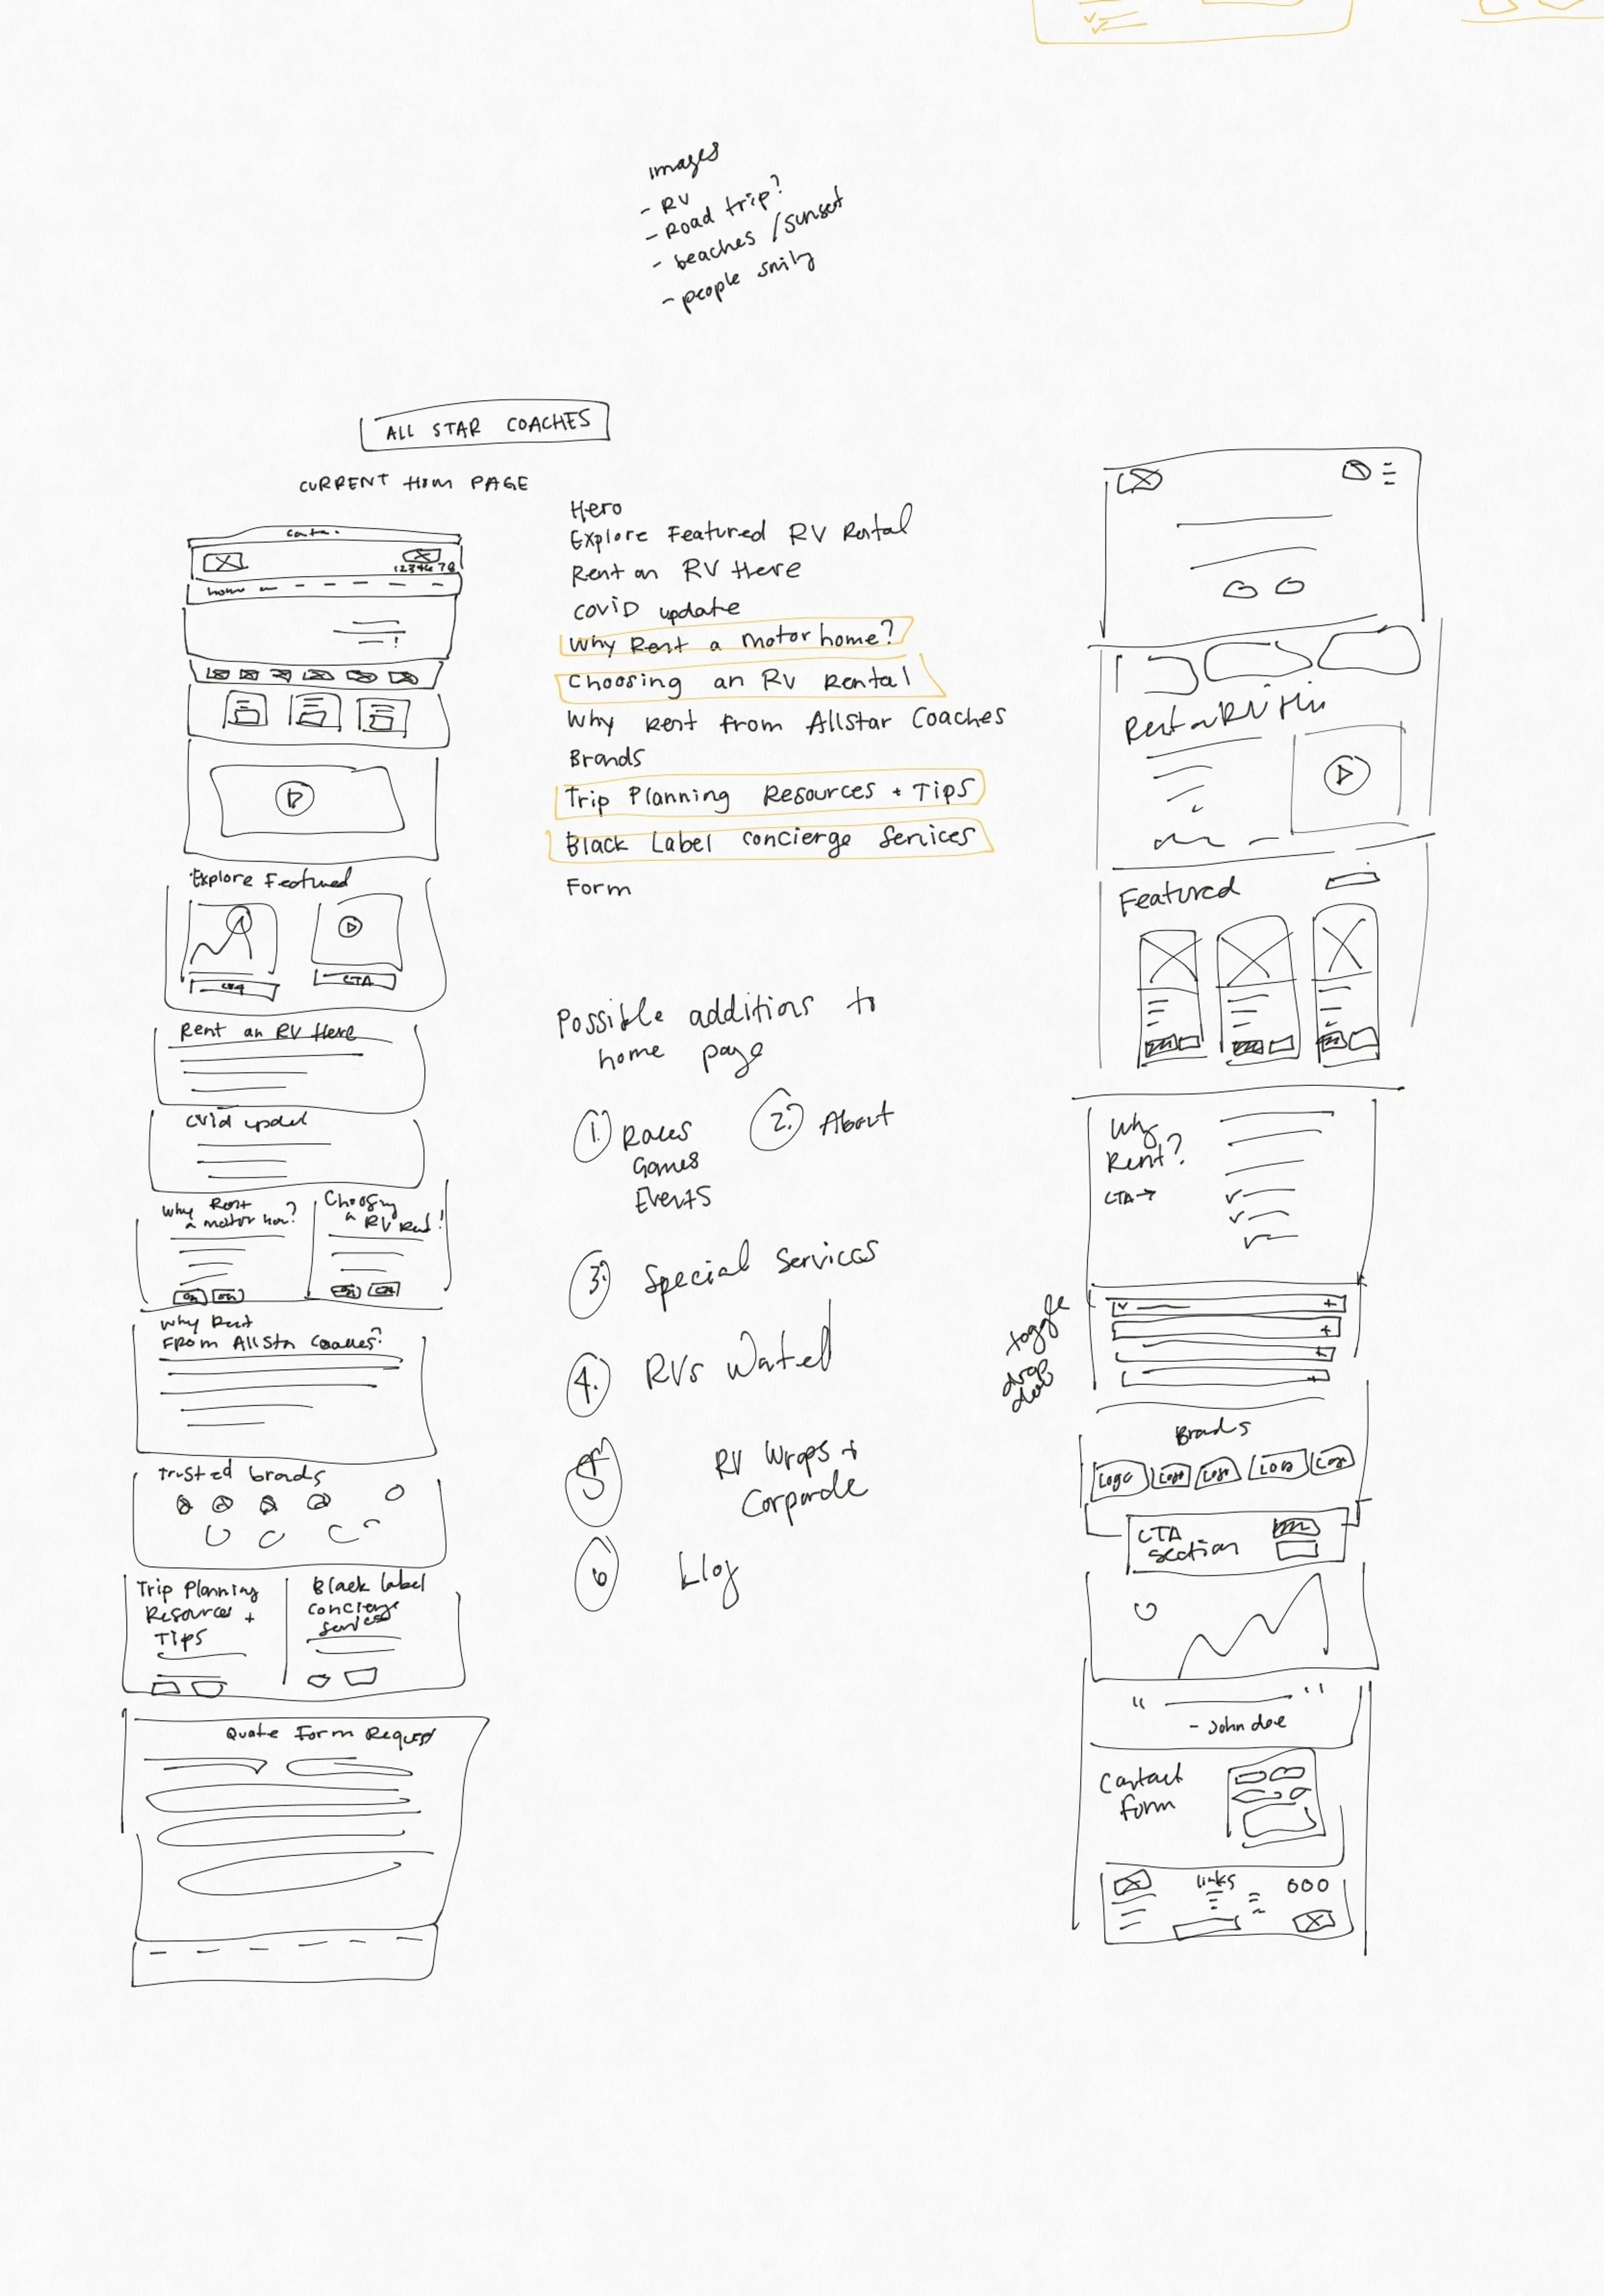 images
- RV
- Road trip?
- beaches /sunset
- people smily
ALL STAR COACHES
CURRENT HOM PAGE
home
1234678
Explore Featured
CTA
Rent an RV Here
covid updat
Why Rent
a motor hom?
Choosing
a RV Rent!
Why Rent
FROM AllStar Coaches?
Trusted brands
Trip Planning
Resources +
Tips
Black label
concierge
services
Quote Form Request
Hero
Explore Featured RV Rental
Rent an RV Here
COVID update
Why Rent a motorhome?
Choosing an RV Rental
Why Rent from Allstar Coaches
Brands
Trip Planning Resources + Tips
Black Label concierge Services
Form
Possible additions to
home page
1.
Races
Games
Events
2.
About
3.
Special Services
4.
RVs Wanted
5
RV Wraps +
Corporate
6
Rent an RV
Featured
Why
Rent?
CTA→
toggle
drop
Brands
Logo
Logo
Logo
Logo
Logo
CTA
section
" "
- John doe
Contact
form
links